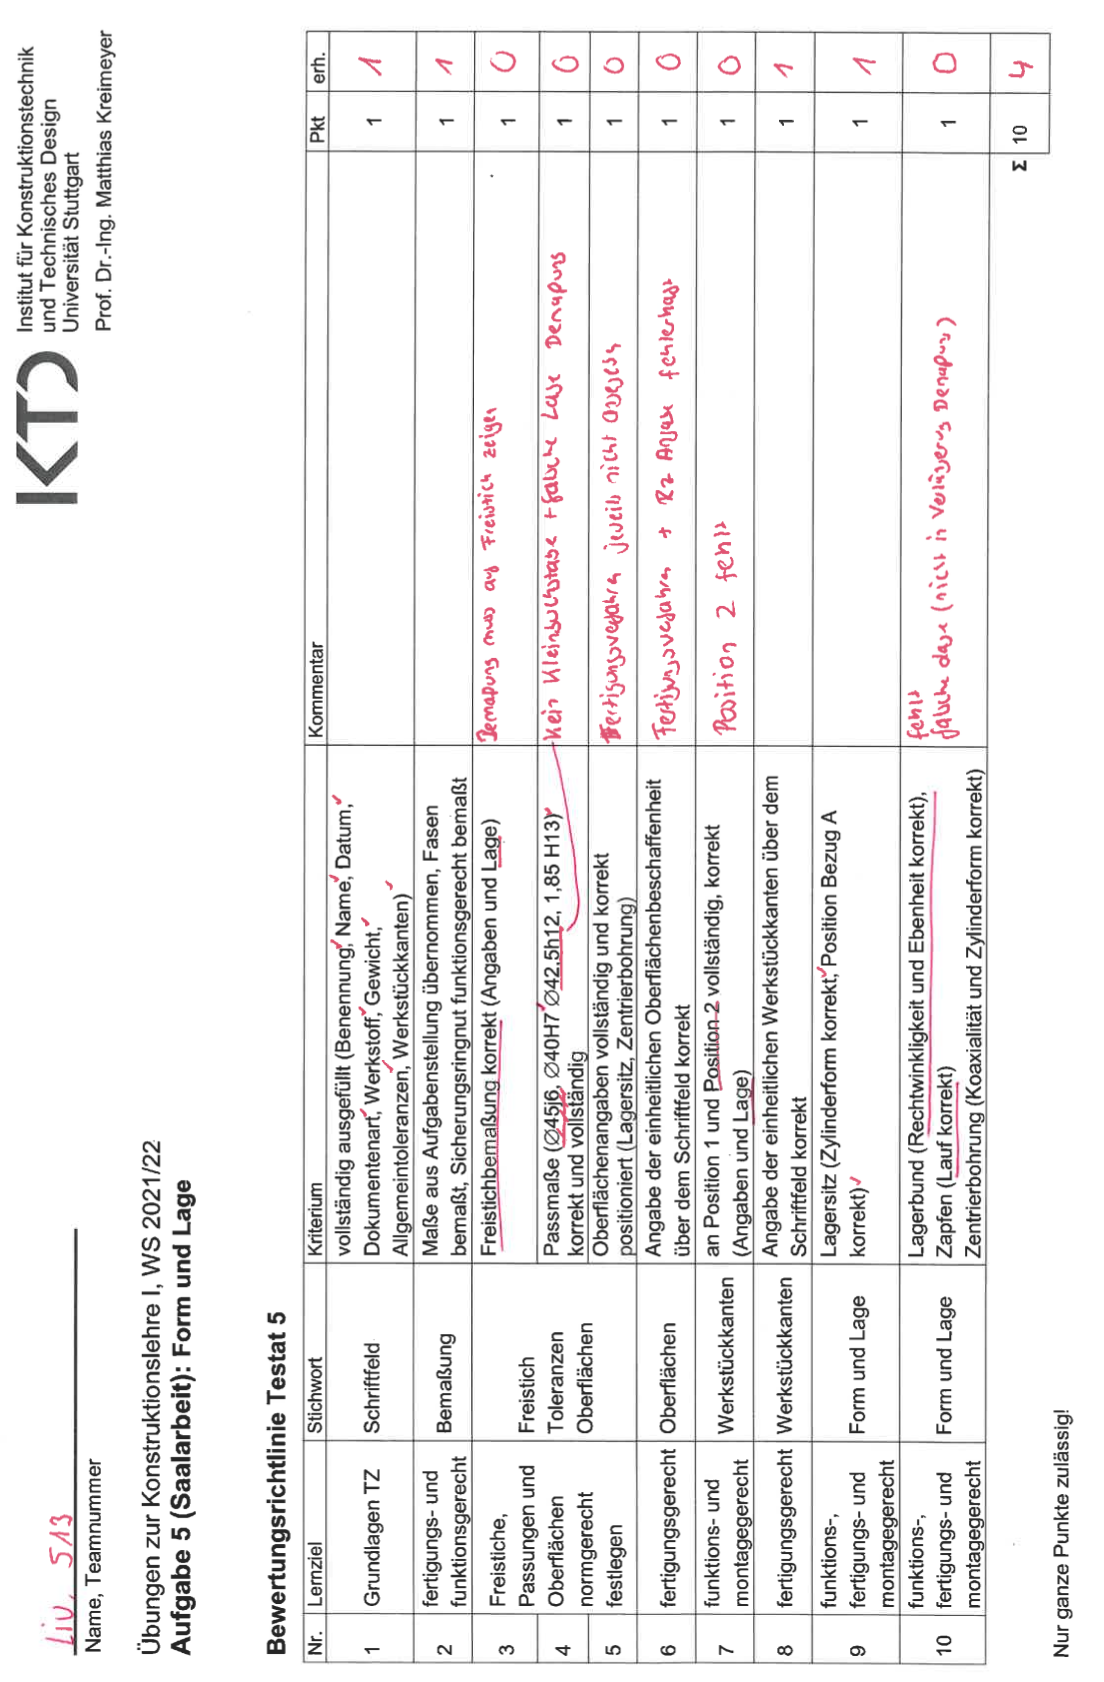 KTD
Institut für Konstruktionstechnik
und Technisches Design
Universität Stuttgart
Prof. Dr.-Ing. Matthias Kreimeyer
Liu, 513
Name, Teamnummer
Übungen zur Konstruktionslehre I, WS 2021/22
Aufgabe 5 (Saalarbeit): Form und Lage
Bewertungsrichtlinie Testat 5
Nr. Lernziel Stichwort Kriterium Kommentar Pkt erh.
1 Grundlagen TZ Schriftfeld vollständig ausgefüllt (Benennung, Name, Datum,
Dokumentenart, Werkstoff, Gewicht,
Allgemeintoleranzen, Werkstückkanten) 1 1
2 fertigungs- und
funktionsgerecht Bemaßung Maße aus Aufgabenstellung übernommen, Fasen
bemaßt, Sicherungsringnut funktionsgerecht bemaßt 1 1
3 Freistiche,
Passungen und
Oberflächen
normgerecht
festlegen Freistich
Toleranzen
Oberflächen Freistichbemaßung korrekt (Angaben und Lage) Bemaßung muss auf Freistich zeigen 1 0
4 Passmaße (Ø45j6, Ø40H7 Ø42.5h12, 1,85 H13)
korrekt und vollständig Kein Kleinbuchstabe + falsche Lage Bemaßung 1 0
5 Oberflächenangaben vollständig und korrekt
positioniert (Lagersitz, Zentrierbohrung) Fertigungsverfahren jeweils nicht angegeben 1 0
6 fertigungsgerecht Oberflächen Angabe der einheitlichen Oberflächenbeschaffenheit
über dem Schriftfeld korrekt Fertigungsverfahren + Rz Angabe fehlerhaft 1 0
7 funktions- und
montagegerecht Werkstückkanten an Position 1 und Position 2 vollständig, korrekt
(Angaben und Lage) Position 2 fehlt 1 0
8 fertigungsgerecht Werkstückkanten Angabe der einheitlichen Werkstückkanten über dem
Schriftfeld korrekt 1 1
9 funktions-,
fertigungs- und
montagegerecht Form und Lage Lagersitz (Zylinderform korrekt, Position Bezug A
korrekt) 1 1
10 funktions-,
fertigungs- und
montagegerecht Form und Lage Lagerbund (Rechtwinkligkeit und Ebenheit korrekt),
Zapfen (Lauf korrekt)
Zentrierbohrung (Koaxialität und Zylinderform korrekt) fehlt
falsche Lage (nicht in Verlängerung Bemaßung) 1 0
Σ 10 4
Nur ganze Punkte zulässig!